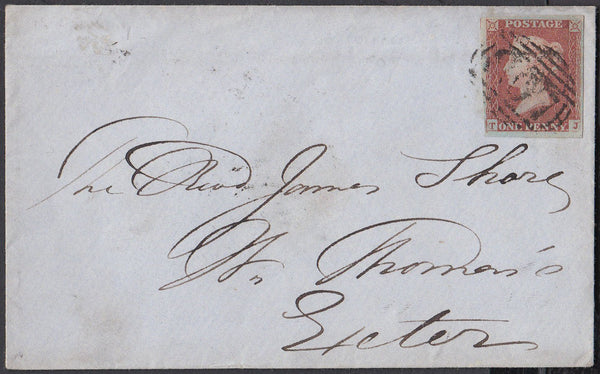 POSTAGE
T ONE PENNY J
The Revd. James Shore
St. Thomas's
Exeter